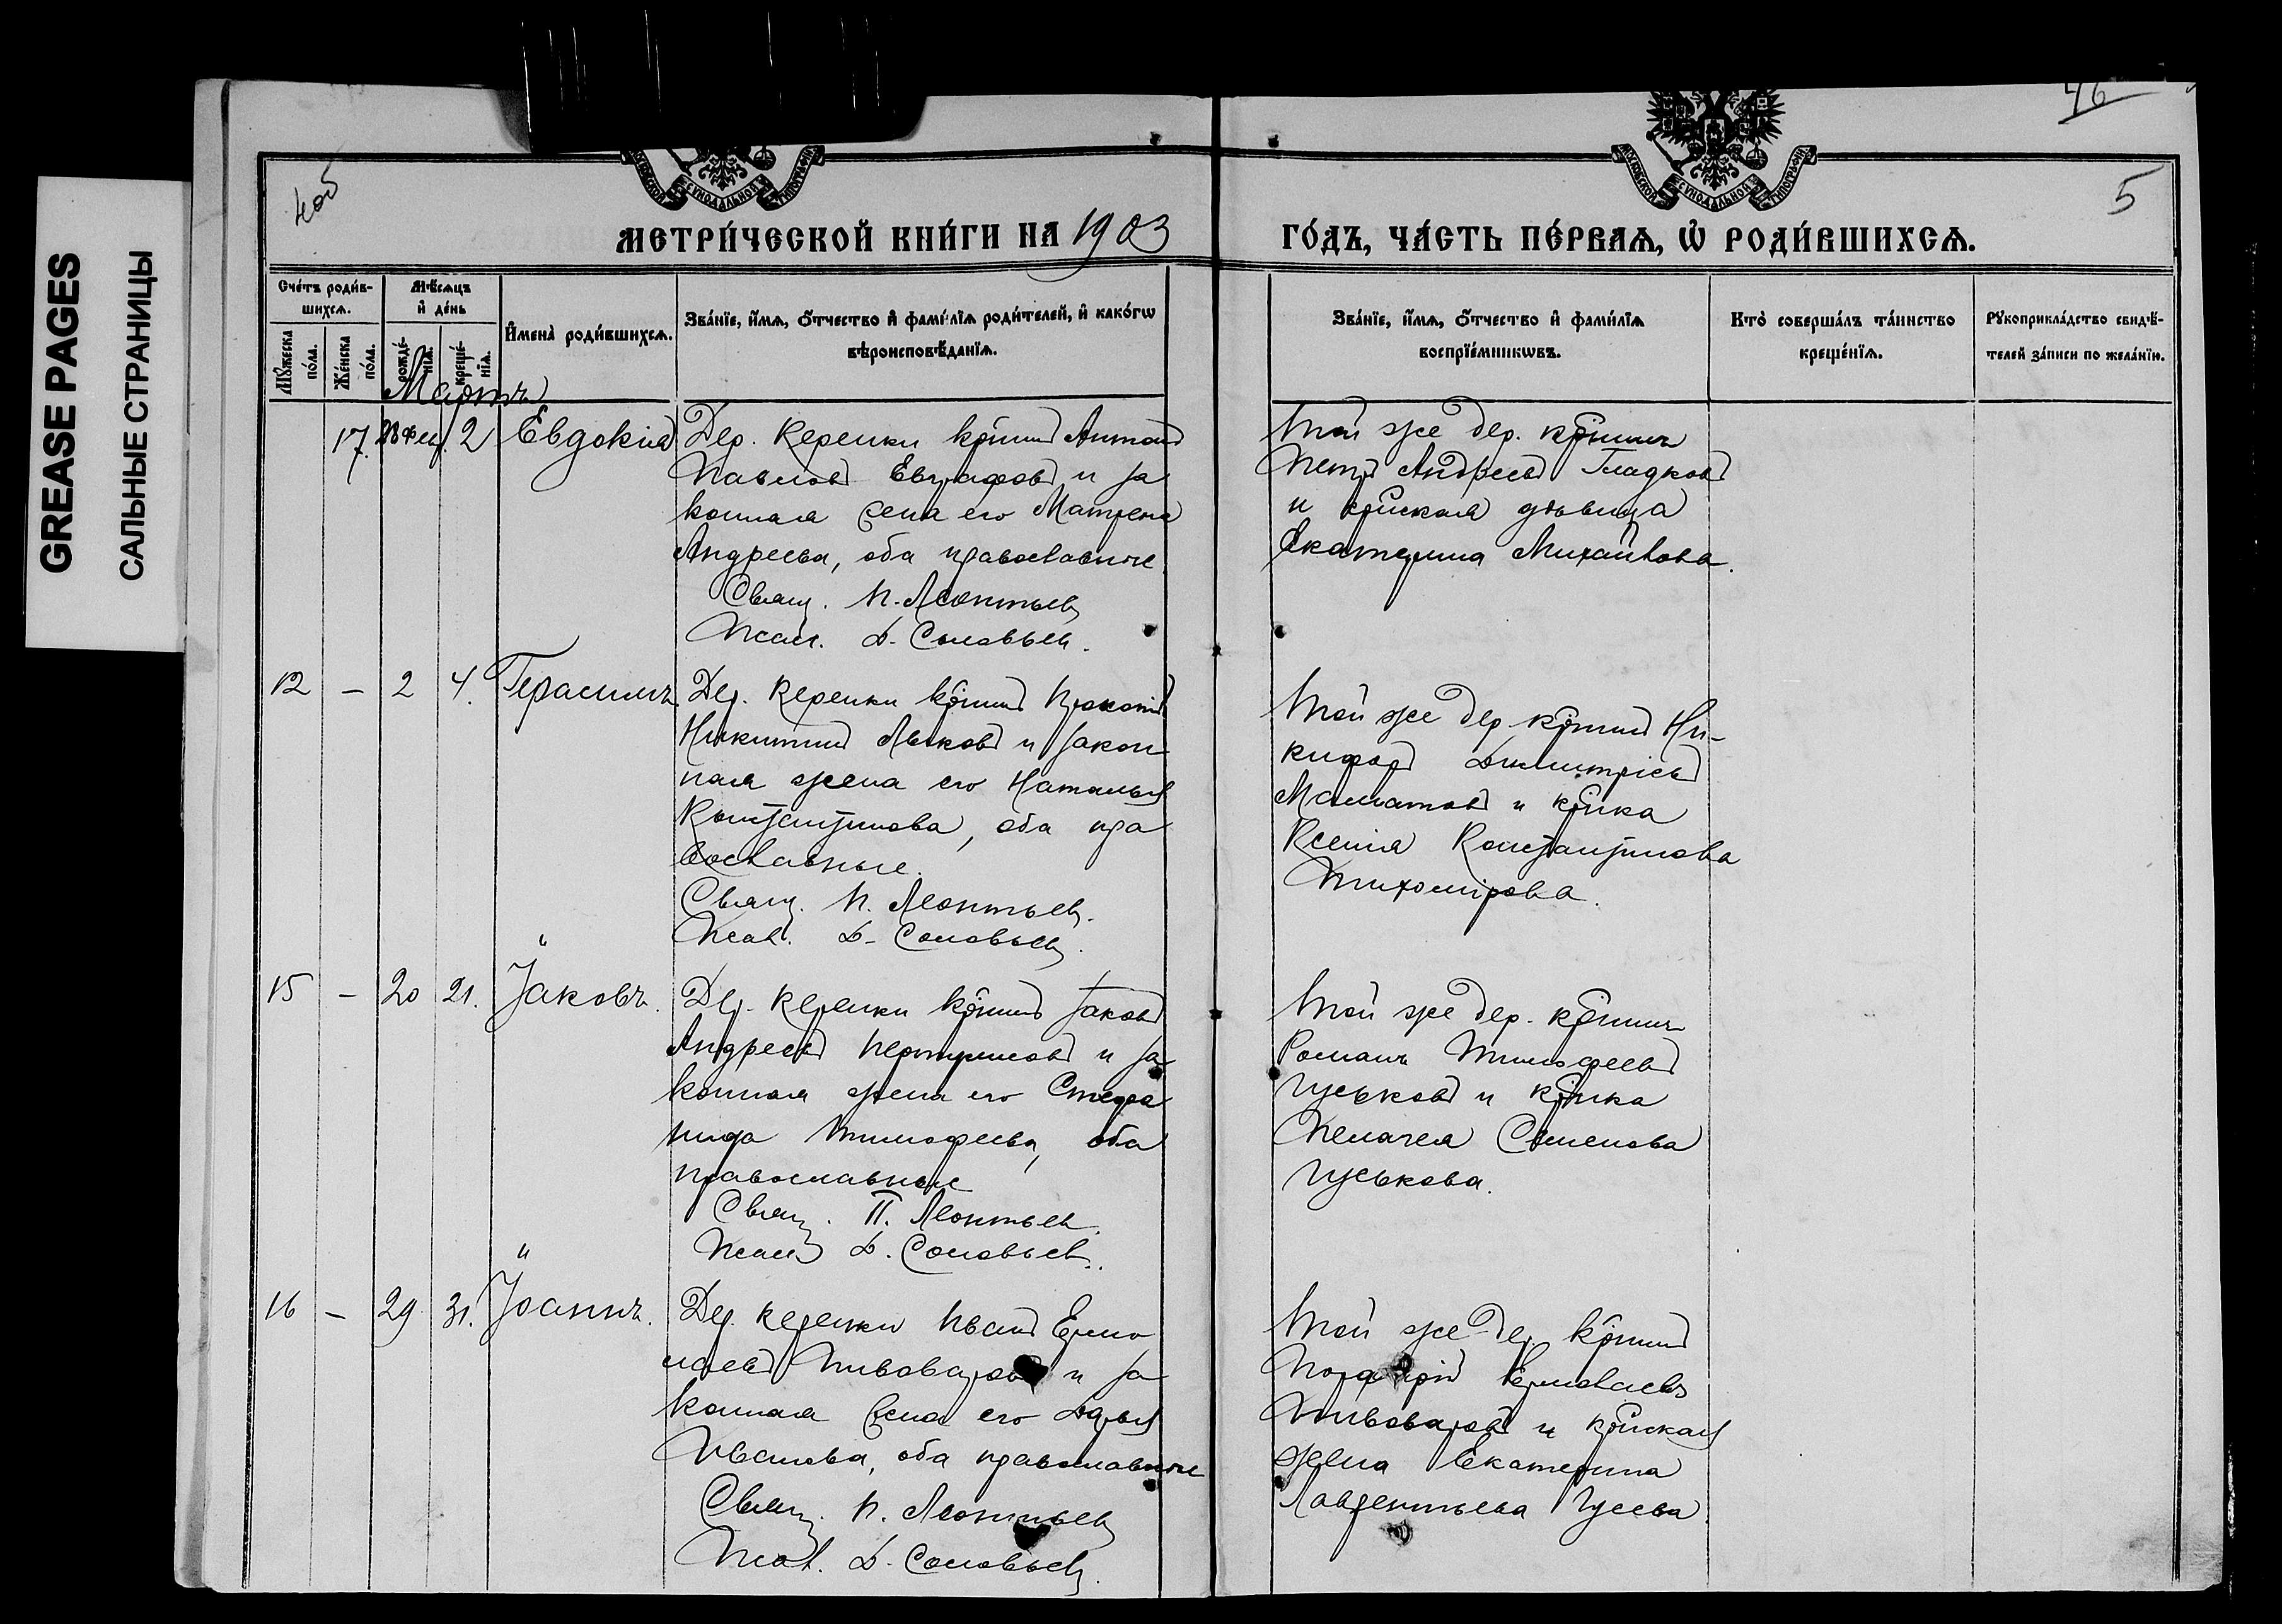 GREASE PAGES
САЛЬНЫЕ СТРАНИЦЫ
4об
46
5
МЕТРИ́ЧЕСКОЙ КНИ́ГИ НА 1903 ГО́ДЪ, ЧА́СТЬ ПЕ́РВАѦ, Ѡ҆ РОДИ́ВШИХСѦ.
МОСКОВСКОЙ СѴНОДАЛЬНОЙ ТИПОГРАФІИ
Сче́тъ роди́в-
шихсѧ.
Мꙋ́жеска по́ла.
Же́нска по́ла.
Мѣ́сѧцъ
и҆ де́нь
рожде́-
нїѧ.
креще́-
нїѧ.
И҆мена̀ роди́вшихсѧ.
Зва́нїе, и҆́мѧ, ѻ҆́тчество и҆ фами́лїѧ роди́телей, и҆ како́гѡ
вѣроисповѣ́данїѧ.
Зва́нїе, и҆́мѧ, ѻ҆́тчество и҆ фами́лїѧ
воспрїе́мникѡвъ.
Кто̀ соверша́лъ та́инство
креще́нїѧ.
Рꙋкоприкла́дство свидѣ́-
телей за́писи по жела́нїю.
Мартъ
17. 28 Фев. 2 Евдокія
Дер. Керенки кр-инъ Антонъ
Павловъ Евграфовъ и за
конная жена его Матрена
Андреева, оба православные.
Свящ. П. Леонтьевъ
Псал. Д. Соловьевъ.
Той же дер. кр-нинъ
Петръ Андреевъ Гладковъ
и кр-нская дѣвица
Екатерина Михайлова.
12 – 2 4. Герасимъ.
Дер. Керенки кр-нинъ Прокопій
Никитинъ Лыковъ и закон
ная жена его Наталья
Константинова, оба пра
вославные.
Свящ. П. Леонтьевъ.
Псал. Д. Соловьевъ.
Той же дер. кр-нинъ Ни-
кифоръ Димитріевъ
и кр-нка
Ксенія Константинова
Тихомірова.
15 – 20 21. Іаковъ.
Дер. Керенки кр-нинъ Іаковъ
Андреевъ и за
конная жена его Стефа
нида Тимофеева, оба
православные
Свящ. П. Леонтьевъ.
Псал. Д. Соловьевъ.
Той же дер. кр-нинъ
Романъ Тимофеевъ
Гуськовъ и кр-нка
Пелагея Семенова
Гуськова.
16 – 29 31. Іоаннъ.
Дер. Керенки Иванъ Ермо
лаевъ Пивоваровъ и за
конная жена его Дарья
Иванова, оба православные
Свящ. П. Леонтьевъ
Псал. Д. Соловьевъ.
Той же дер. кр-нинъ
Порфирій Ермолаевъ
Пивоваровъ и кр-нская
жена Екатерина
Лаврентьева Гусева